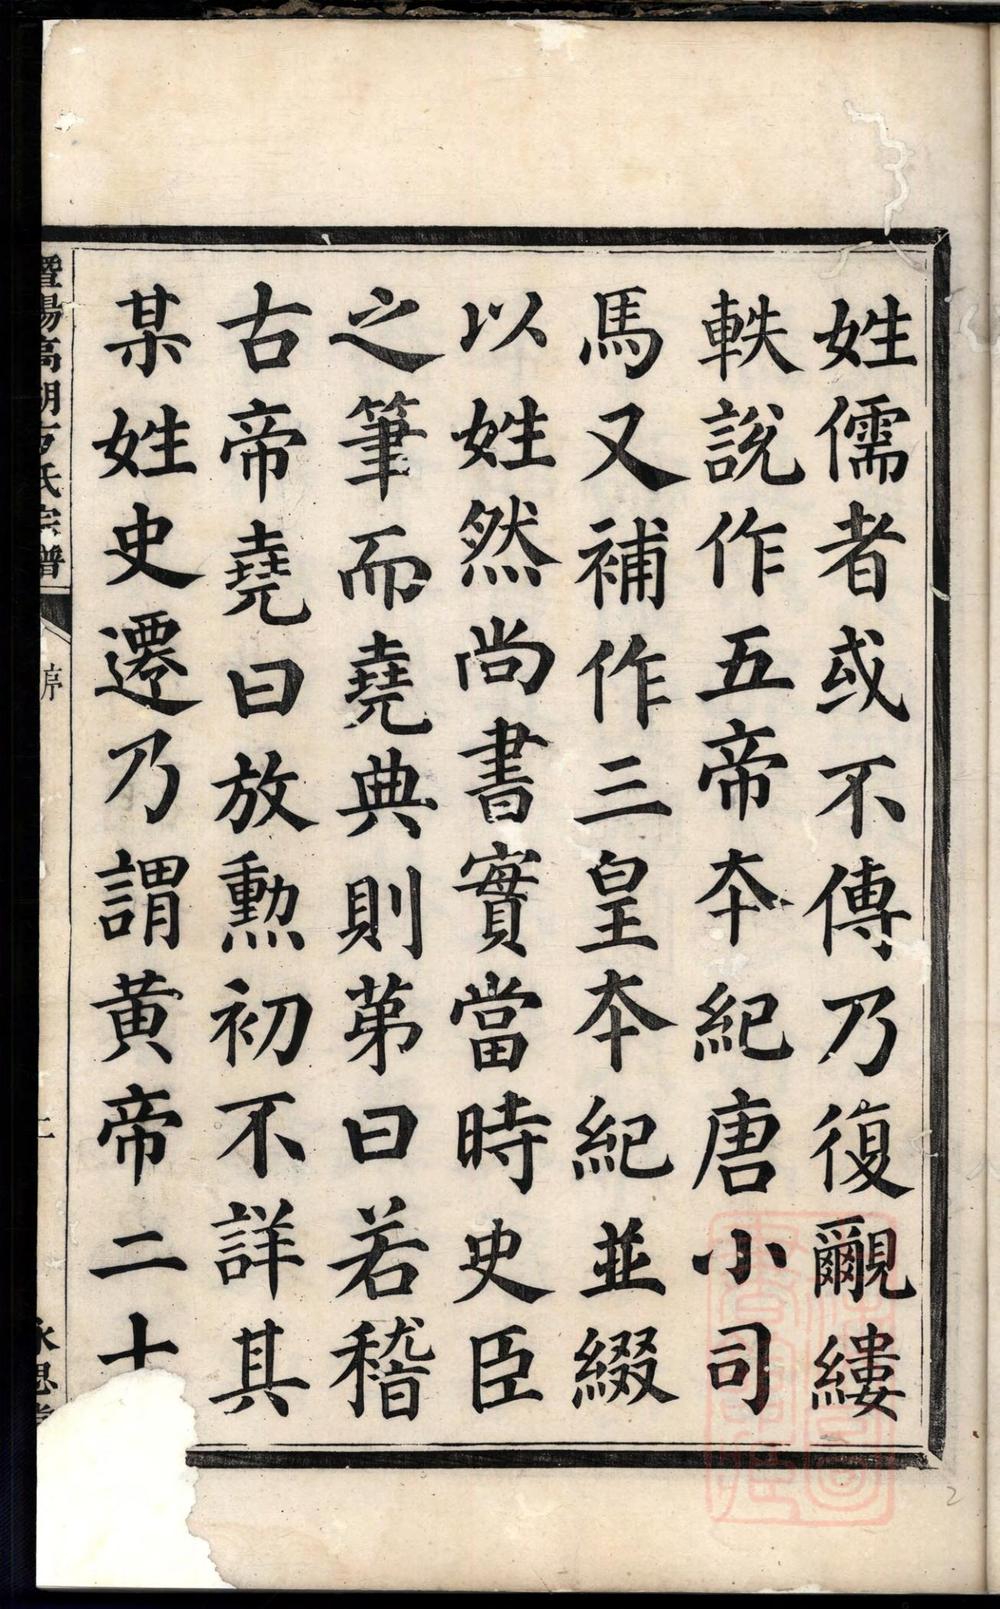 姓儒者或不傳乃復覼縷
軼說作五帝本紀唐小司
馬又補作三皇本紀並綴
以姓然尚書實當時史臣
之筆而堯典則第曰若稽
古帝堯曰放勲初不詳其
某姓史遷乃謂黃帝二十
暨陽高湖 氏宗譜
序